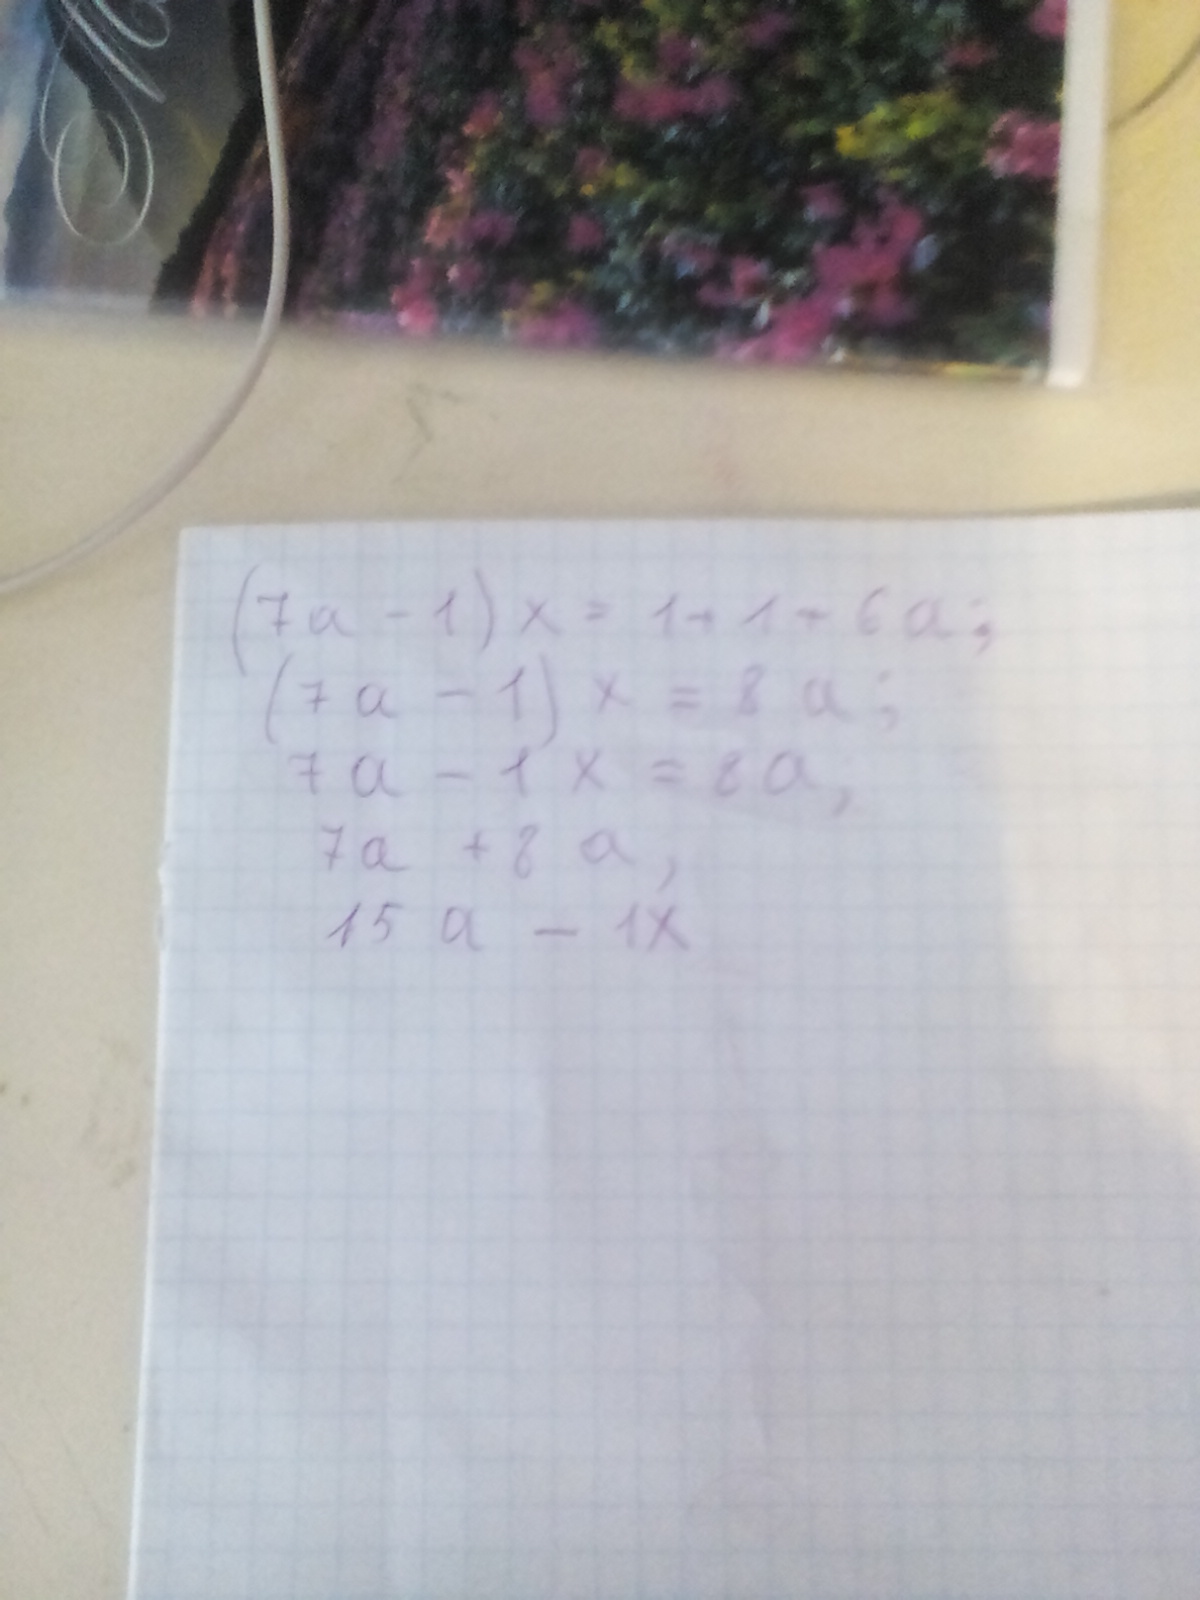 (7a - 1) x = 1 + 1 + 6a;
(7a - 1) x = 8a;
7a - 1x = 8a;
7a + 8a,
15a - 1x